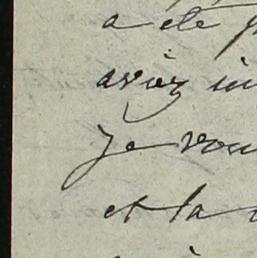 a été
aviez
Je vou
et la